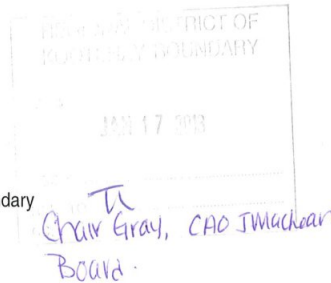 REGIONAL DISTRICT OF
KOOTENAY BOUNDARY
JAN 17 2013
ndary
Chair Gray, CAO
Board.